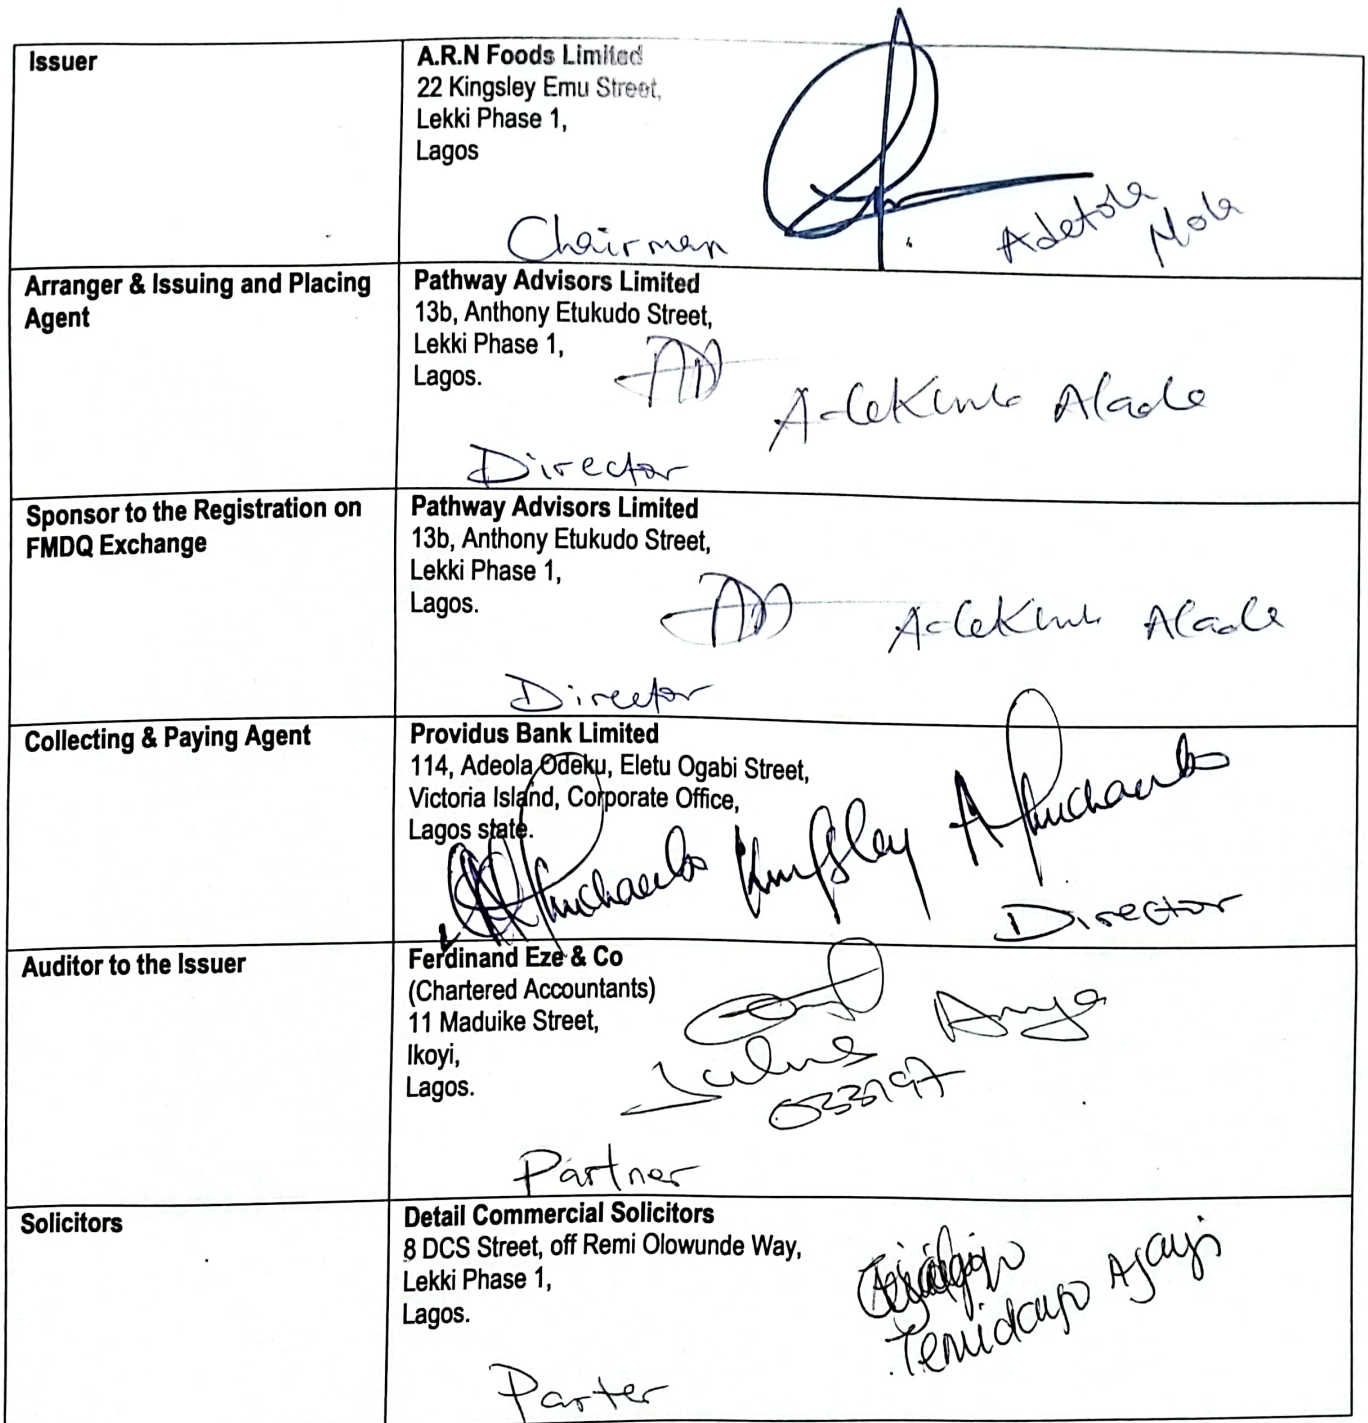 Issuer
A.R.N Foods Limited
22 Kingsley Emu Street,
Lekki Phase 1,
Lagos
Chairman
Adetola
Nola
Arranger & Issuing and Placing
Agent
Pathway Advisors Limited
13b, Anthony Etukudo Street,
Lekki Phase 1,
Lagos.
Adekunle Alade
Director
Sponsor to the Registration on
FMDQ Exchange
Pathway Advisors Limited
13b, Anthony Etukudo Street,
Lekki Phase 1,
Lagos.
Adekunle Alade
Director
Collecting & Paying Agent
Providus Bank Limited
114, Adeola Odeku, Eletu Ogabi Street,
Victoria Island, Corporate Office,
Lagos state.
Kingsley
Director
Auditor to the Issuer
Ferdinand Eze & Co
(Chartered Accountants)
11 Maduike Street,
Ikoyi,
Lagos.
Julius Anya
Partner
Solicitors
Detail Commercial Solicitors
8 DCS Street, off Remi Olowunde Way,
Lekki Phase 1,
Lagos.
Temidayo Ajayi
Parter